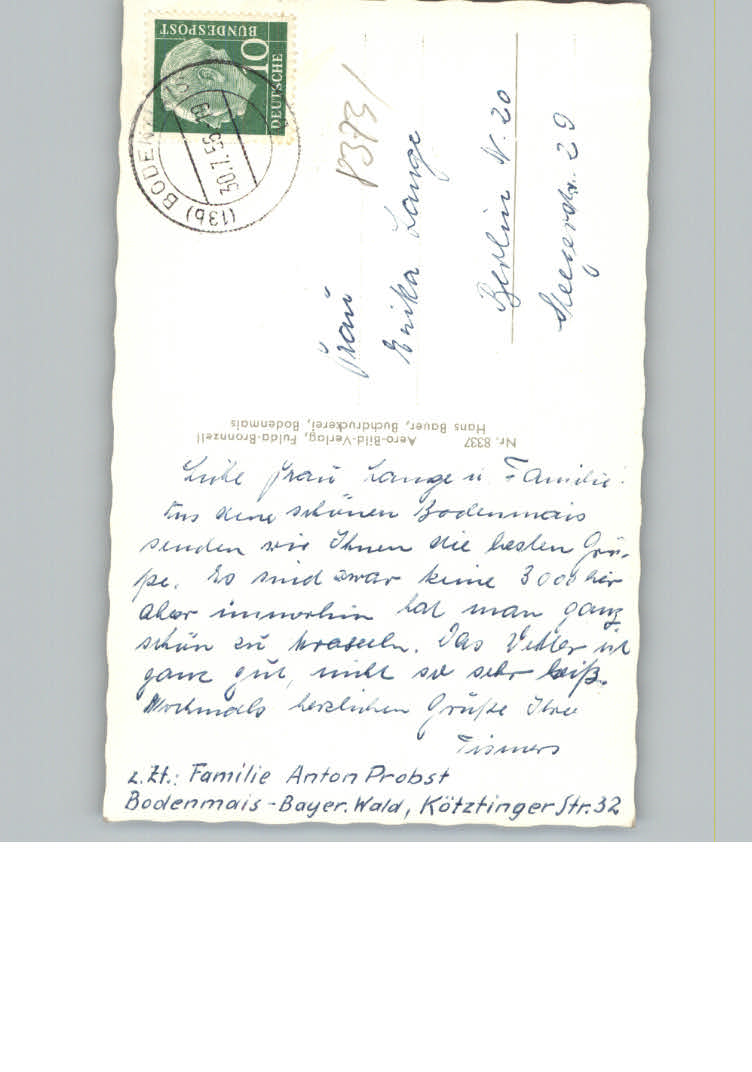 DEUTSCHE
BUNDESPOST
10
(13b) BODENM
30.7.55
8373/
Frau
Erika Lange
Berlin N. 20
29
Nr. 8337 Aero-Bild-Verlag, Fulda-Bronnzell
Hans Bauer, Buchdruckerei, Bodenmais
Liebe Frau Lange u. Familie!
Aus dem schönen Bodenmais
senden wir Ihnen die besten Grü-
ße. Es sind zwar keine 3000 hier
aber immerhin hat man ganz
schön zu kraxeln. Das Wetter ist
ganz gut, nicht so sehr heiß.
Nochmals herzlichen Grüße Ihre
Tismers
z.Zt.: Familie Anton Probst
Bodenmais-Bayer. Wald, Kötztinger Str. 32